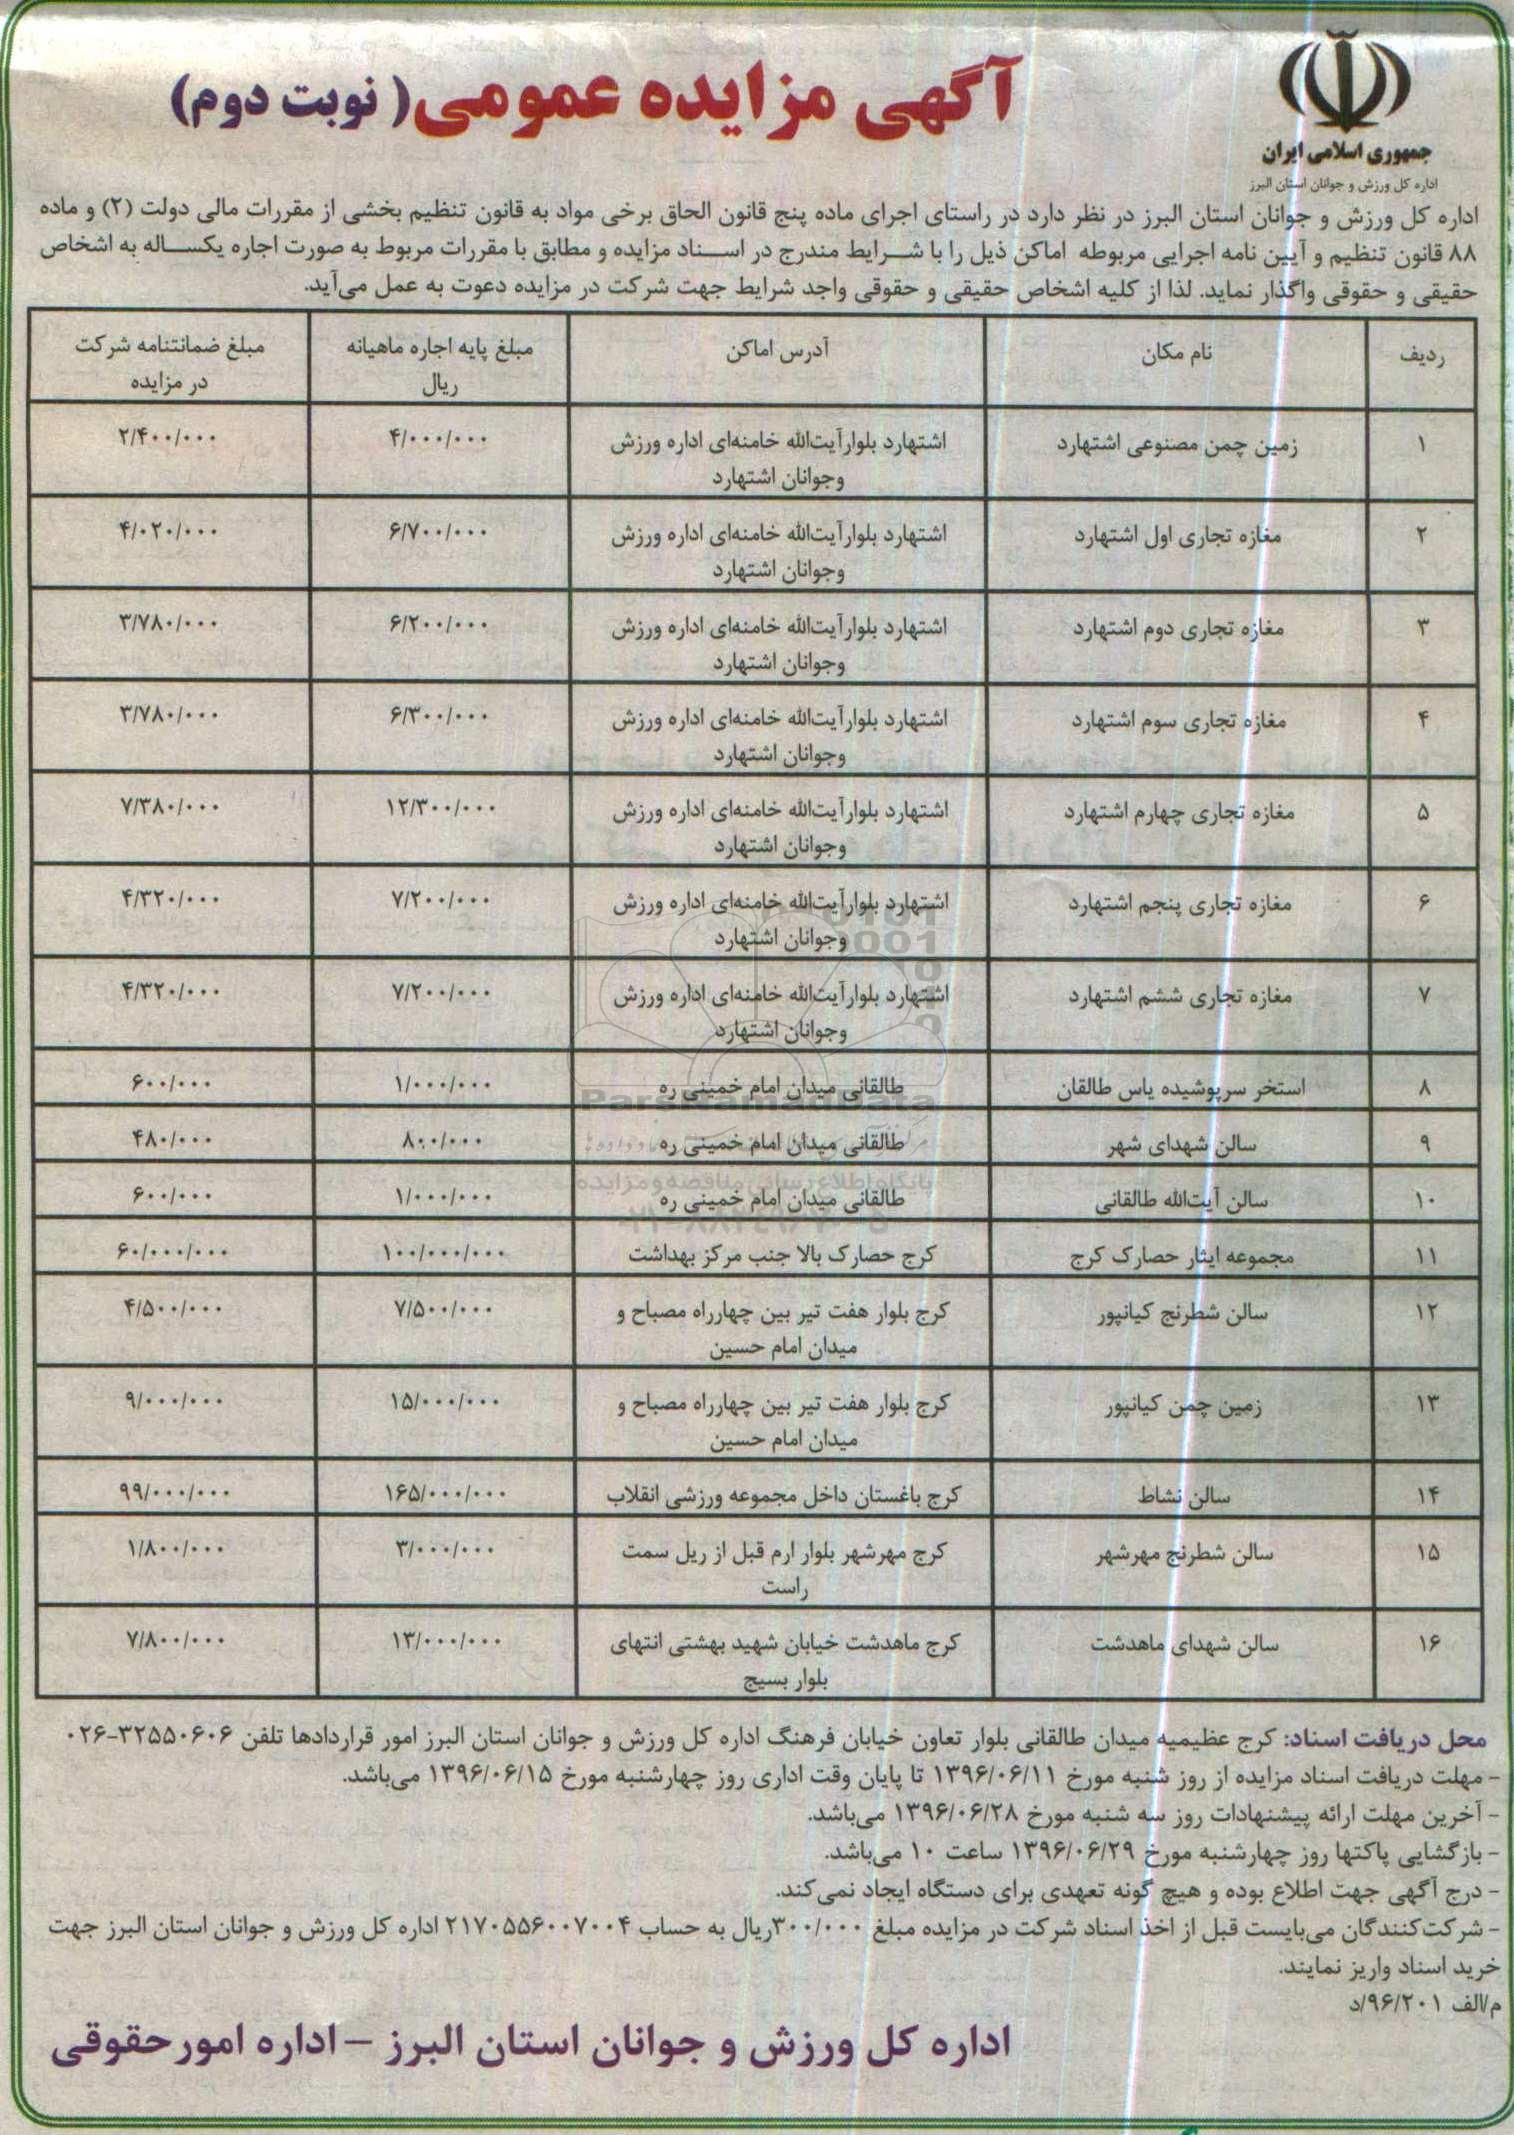 جمهوری اسلامی ایران
اداره کل ورزش و جوانان استان البرز
آگهی مزایده عمومی( نوبت دوم)
اداره کل ورزش و جوانان استان البرز در نظر دارد در راستای اجرای ماده پنج قانون الحاق برخی مواد به قانون تنظیم بخشی از مقررات مالی دولت (۲) و ماده
۸۸ قانون تنظیم و آیین نامه اجرایی مربوطه اماکن ذیل را با شرایط مندرج در اسناد مزایده و مطابق با مقررات مربوط به صورت اجاره یکساله به اشخاص
حقیقی و حقوقی واگذار نماید. لذا از کلیه اشخاص حقیقی و حقوقی واجد شرایط جهت شرکت در مزایده دعوت به عمل می‌آید.
ردیف نام مکان آدرس اماکن مبلغ پایه اجاره ماهیانه مبلغ ضمانتنامه شرکت
ریال در مزایده
۱ زمین چمن مصنوعی اشتهارد اشتهارد بلوارآیت‌الله خامنه‌ای اداره ورزش ۴/۰۰۰/۰۰۰ ۲/۴۰۰/۰۰۰
وجوانان اشتهارد
۲ مغازه تجاری اول اشتهارد اشتهارد بلوارآیت‌الله خامنه‌ای اداره ورزش ۶/۷۰۰/۰۰۰ ۴/۰۲۰/۰۰۰
وجوانان اشتهارد
۳ مغازه تجاری دوم اشتهارد اشتهارد بلوارآیت‌الله خامنه‌ای اداره ورزش ۶/۲۰۰/۰۰۰ ۳/۷۸۰/۰۰۰
وجوانان اشتهارد
۴ مغازه تجاری سوم اشتهارد اشتهارد بلوارآیت‌الله خامنه‌ای اداره ورزش ۶/۳۰۰/۰۰۰ ۳/۷۸۰/۰۰۰
وجوانان اشتهارد
۵ مغازه تجاری چهارم اشتهارد اشتهارد بلوارآیت‌الله خامنه‌ای اداره ورزش ۱۲/۳۰۰/۰۰۰ ۷/۳۸۰/۰۰۰
وجوانان اشتهارد
۶ مغازه تجاری پنجم اشتهارد اشتهارد بلوارآیت‌الله خامنه‌ای اداره ورزش ۷/۲۰۰/۰۰۰ ۴/۳۲۰/۰۰۰
وجوانان اشتهارد
۷ مغازه تجاری ششم اشتهارد اشتهارد بلوارآیت‌الله خامنه‌ای اداره ورزش ۷/۲۰۰/۰۰۰ ۴/۳۲۰/۰۰۰
وجوانان اشتهارد
۸ استخر سرپوشیده یاس طالقان طالقانی میدان امام خمینی ره ۱/۰۰۰/۰۰۰ ۶۰۰/۰۰۰
ParsNamadData
۹ سالن شهدای شهر طالقانی میدان امام خمینی ره ۸۰۰/۰۰۰ ۴۸۰/۰۰۰
پایگاه اطلاع رسانی مناقصه و مزایده
۱۰ سالن آیت‌الله طالقانی طالقانی میدان امام خمینی ره ۱/۰۰۰/۰۰۰ ۶۰۰/۰۰۰
۱۱ مجموعه ایثار حصارک کرج کرج حصارک بالا جنب مرکز بهداشت ۱۰۰/۰۰۰/۰۰۰ ۶۰/۰۰۰/۰۰۰
۱۲ سالن شطرنج کیانپور کرج بلوار هفت تیر بین چهارراه مصباح و ۷/۵۰۰/۰۰۰ ۴/۵۰۰/۰۰۰
میدان امام حسین
۱۳ زمین چمن کیانپور کرج بلوار هفت تیر بین چهارراه مصباح و ۱۵/۰۰۰/۰۰۰ ۹/۰۰۰/۰۰۰
میدان امام حسین
۱۴ سالن نشاط کرج باغستان داخل مجموعه ورزشی انقلاب ۱۶۵/۰۰۰/۰۰۰ ۹۹/۰۰۰/۰۰۰
۱۵ سالن شطرنج مهرشهر کرج مهرشهر بلوار ارم قبل از ریل سمت ۳/۰۰۰/۰۰۰ ۱/۸۰۰/۰۰۰
راست
۱۶ سالن شهدای ماهدشت کرج ماهدشت خیابان شهید بهشتی انتهای ۱۳/۰۰۰/۰۰۰ ۷/۸۰۰/۰۰۰
بلوار بسیج
محل دریافت اسناد: کرج عظیمیه میدان طالقانی بلوار تعاون خیابان فرهنگ اداره کل ورزش و جوانان استان البرز امور قراردادها تلفن ۳۲۵۵۰۶۰۶-۰۲۶
- مهلت دریافت اسناد مزایده از روز شنبه مورخ ۱۳۹۶/۰۶/۱۱ تا پایان وقت اداری روز چهارشنبه مورخ ۱۳۹۶/۰۶/۱۵ می‌باشد.
- آخرین مهلت ارائه پیشنهادات روز سه شنبه مورخ ۱۳۹۶/۰۶/۲۸ می‌باشد.
- بازگشایی پاکتها روز چهارشنبه مورخ ۱۳۹۶/۰۶/۲۹ ساعت ۱۰ می‌باشد.
- درج آگهی جهت اطلاع بوده و هیچ گونه تعهدی برای دستگاه ایجاد نمی‌کند.
- شرکت‌کنندگان می‌بایست قبل از اخذ اسناد شرکت در مزایده مبلغ ۳۰۰/۰۰۰ریال به حساب ۲۱۷۰۵۵۶۰۰۷۰۰۴ اداره کل ورزش و جوانان استان البرز جهت
خرید اسناد واریز نمایند.
م/الف ۹۶/۲۰۱/د
اداره کل ورزش و جوانان استان البرز – اداره امورحقوقی